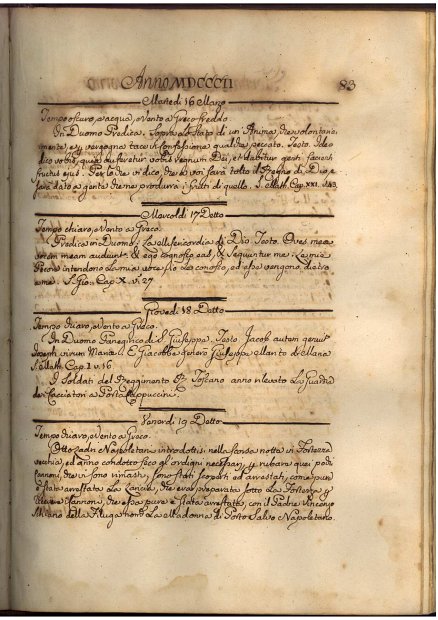 Anno MDCCCII
83
Martedì 16 Marzo
Tempo oscuro, e acqua, e Vento a Greco freddo.
In Duomo Predica. Sopra Lo Stato di un Anima, che volontaria
mente, e p vergogna tace in Confessione qualche peccato. Testo. Ideo
dico vobis, quia auferetur vobis regnum Dei, et dabitur genti facienti
fructus ejus. Perciò Io vi dico, che a voi sarà tolto il Regno di Dio, e
sarà dato a gente che ne produrrà i frutti di quello. S. Matth. Cap. XXI. v. 43
Mercoldì 17 Detto
Tempo chiaro, e Vento a Greco.
Predica in Duomo. La Misericordia di Dio. Testo. Oves meæ
vocem meam audiunt: & ego cognosco eas, & sequuntur me. Le mie
Pecore intendono La mia voce, Io La conosco, ed esse vengono dietro
a me. S. Gio: Cap. X. v. 27
Giovedì 18 Detto
Tempo chiaro, e Vento a Greco.
In Duomo Panegirico di S. Giuseppe. Testo. Jacob autem genuit
Joseph virum Mariæ. E Giacobbe generò Giuseppe Marito di Maria
S. Matth. Cap. 1 v. 16.
I Soldati del Reggimento R. Toscano anno rilevato La Guardia
dei Cacciatori a Porta Cappuccini.
Venerdì 19 Detto
Tempo chiaro, e Vento a Greco.
Otto Ladri Napoletani introdottisi nella scorsa notte in Fortezza
vecchia, ed anno condotto seco gli ordigni necessarj p rubare quei pochi
Cannoni, che vi sono rimasti, sono stati scoperti ed arrestati, come pure
è stata arrestata La Lancia, che era preparata sotto La Fortezza p
Cannoni, che essa pure è stata arrestata, con il Padrone Vincenzo
della Filuga nom.ta La Madonna di Porto Salvo Napoletano.